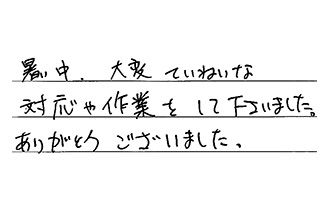 暑い中、大変ていねいな
対応や作業をして下さいました。
ありがとうございました。